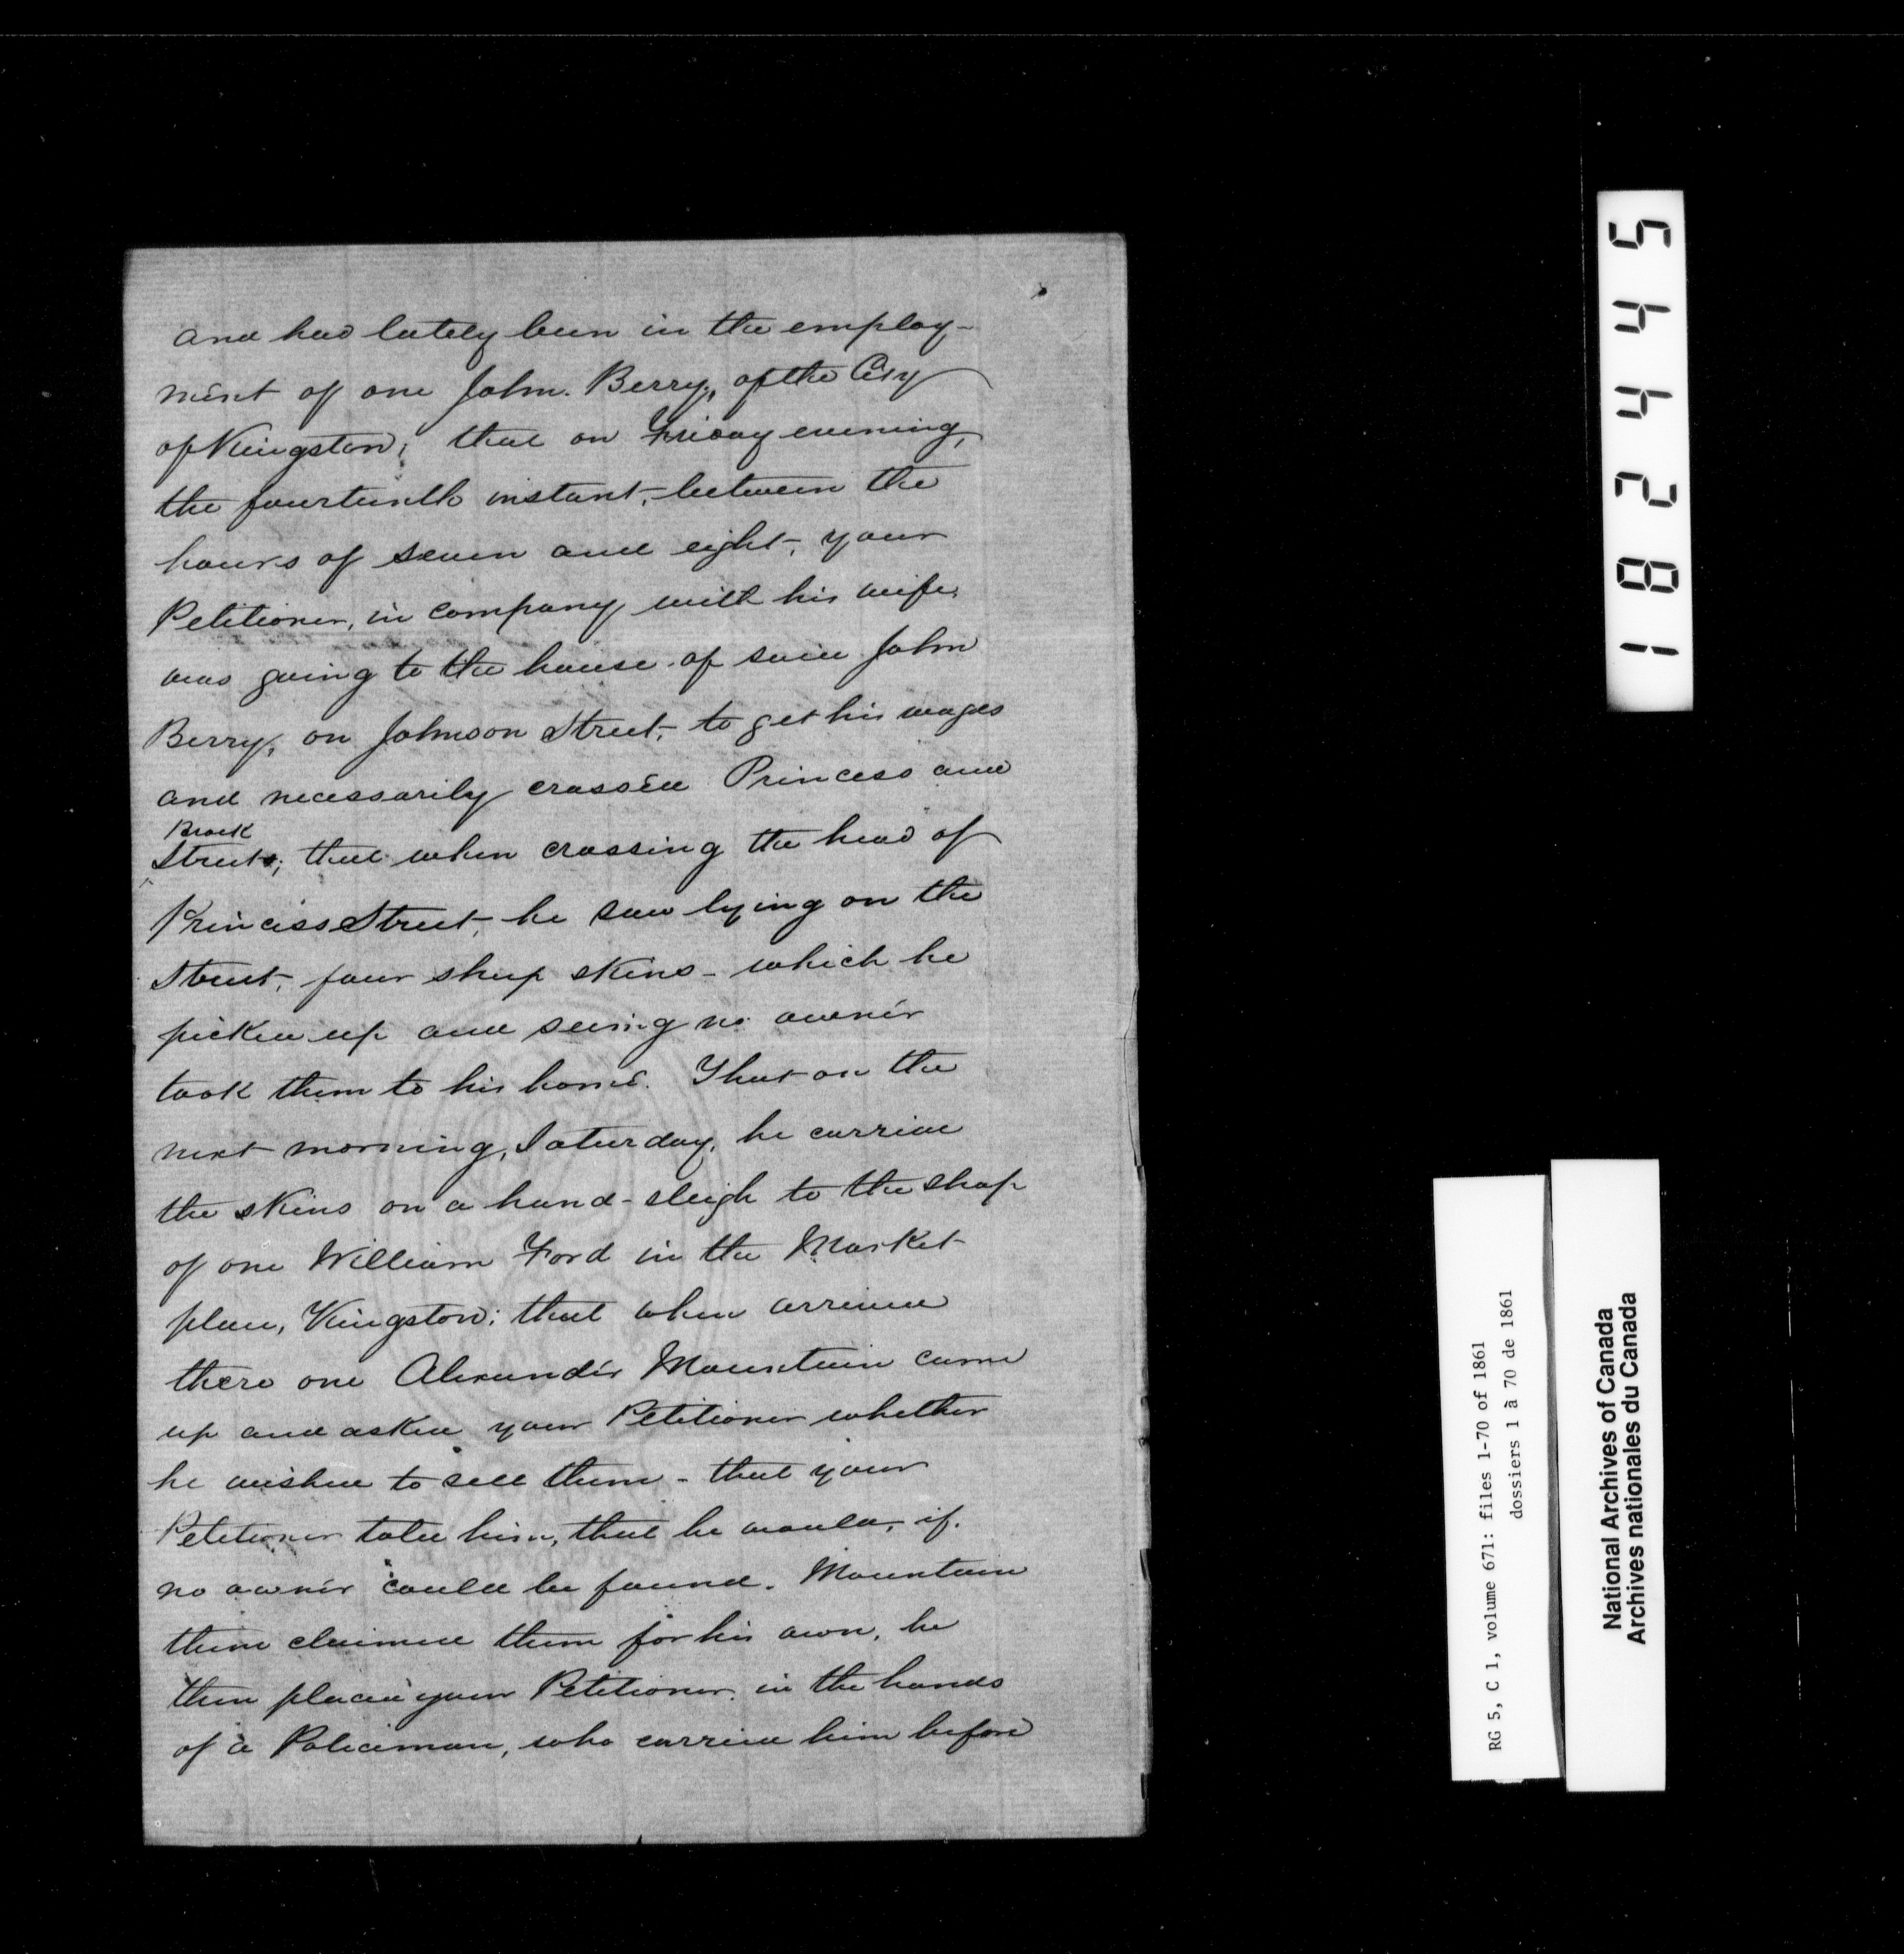 and had lately been in the employ-
ment of one John Berry, of the City
of Kingston; that on Friday evening,
the fourteenth instant, between the
hours of seven and eight, your
Petitioner, in company with his wife,
was going to the house of said John
Berry, on Johnson Street, to get his wages
and necessarily crossed Princess and
Brock
Streets; that when crossing the head of
Princess Street, he saw lying on the
Street, four sheep skins - which he
picked up and seeing no owner
took them to his home. That on the
next morning, Saturday, he carried
the skins on a hand-sleigh to the shop
of one William Ford in the Market
place, Kingston; that when arrived
there one Alexander Mountain came
up and asked your Petitioner whether
he wished to sell them - that your
Petitioner told him, that he would, if
no owner could be found. Mountain
then claimed them for his own, he
then placed your Petitioner in the hands
of a Policeman, who carried him before
182445
RG 5, C 1, volume 671: files 1-70 of 1861
dossiers 1 à 70 de 1861
National Archives of Canada
Archives nationales du Canada